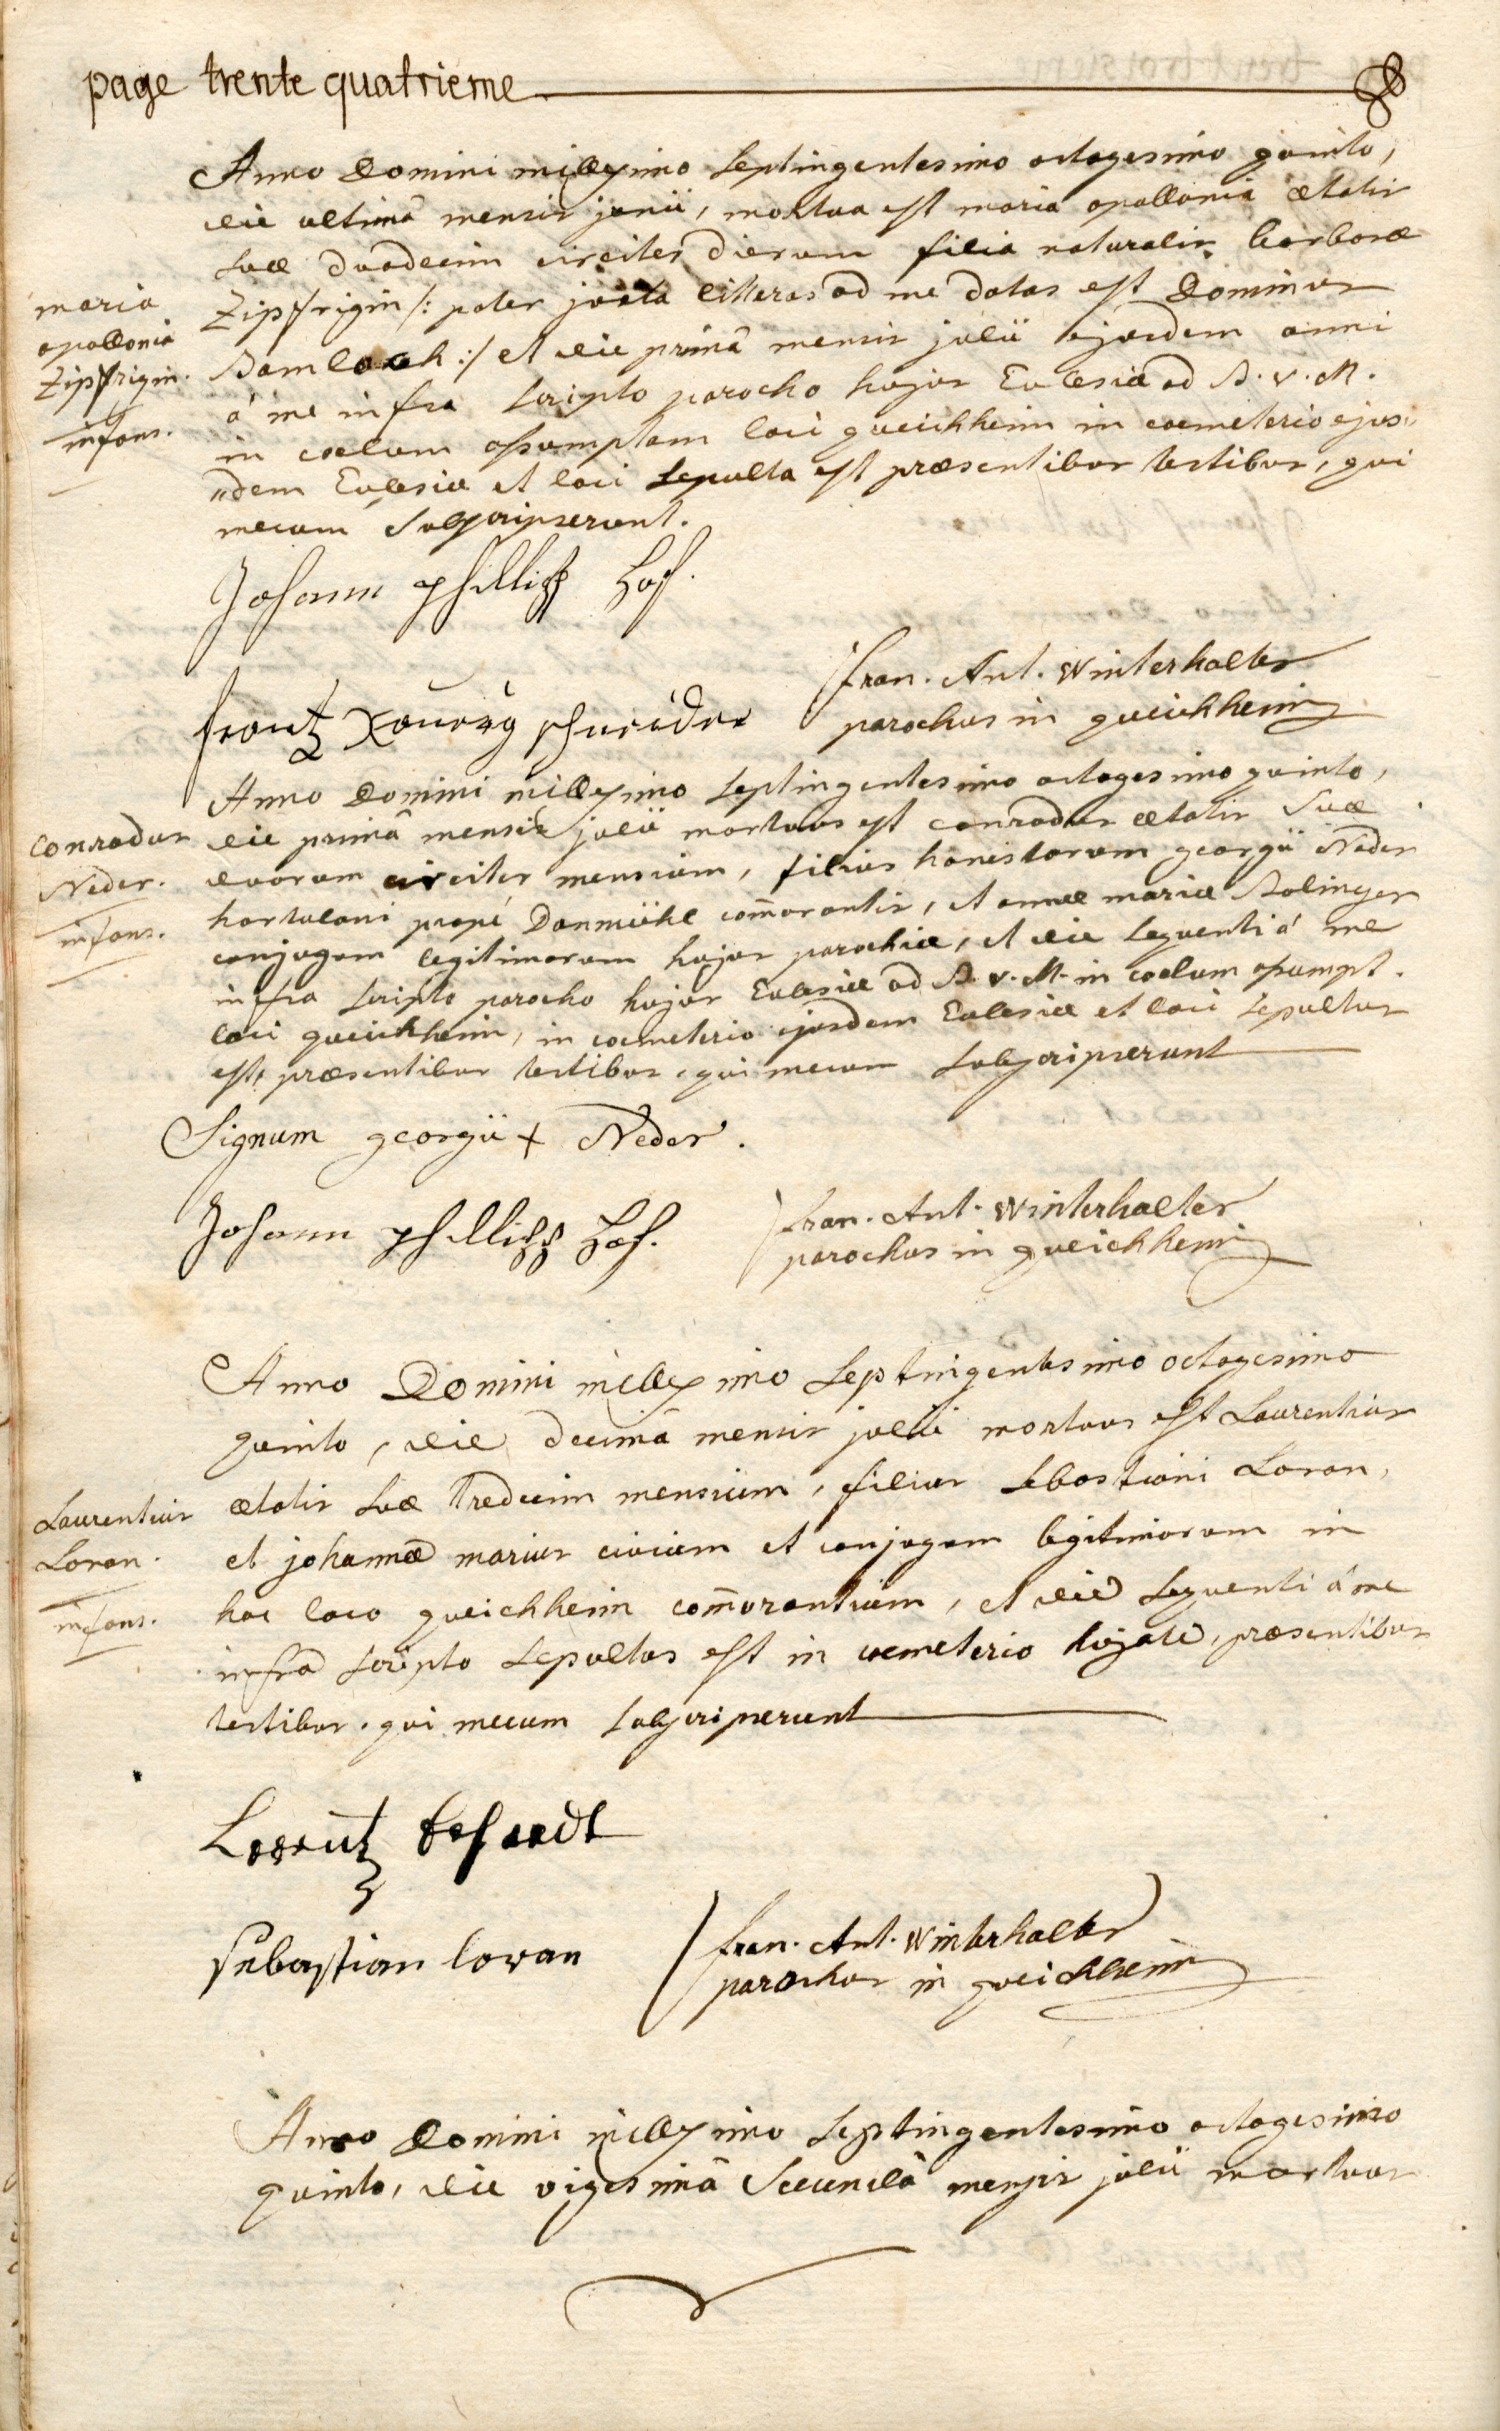 page trente quatrieme
Anno Domini millesimo septingentesimo octogesimo quinto,
die ultimâ mensis junii, mortua est maria apollonia ætatis
suæ duodecim circiter dierum filia naturalis barbaræ
Zipfrigin /: pater juxta litteras ad me datas est Dominus
:/ et die primâ mensis julii ejusdem anni
á me infra scripto parocho hujus Ecclesiæ ad B. v. M.
in coelum assumptam loci queichheim in coemeterio ejus-
"dem Ecclesiæ et loci sepulta est præsentibus testibus, qui
mecum subscripserunt.
maria
apollonia
Zipfrigin.
infans.
Johann phillipp Hof.
frantz Xavery schneider
fran. Ant. Winterhalter
parochus in queichheim
Anno Domini millesimo septingentesimo octogesimo quinto,
die primâ mensis julii mortuus est conradus ætatis suæ
duorum circiter mensium, filius honestorum georgii Neder
hortulani propé Danmühl com̄orantis, et annæ mariæ Bolinger
conjugum legitimorum hujus parochiæ, et die sequenti á me
infra scripto parocho hujus Ecclesiæ ad B. v. M. in coelum assumpt.
loci queichheim, in coemeterio ejusdem Ecclesiæ et loci sepultus
est, præsentibus testibus, qui mecum subscripserunt
conradus
Neder.
infans.
Signum georgii + Neder.
Johann phillipp Hof.
fran. Ant. Winterhalter
parochus in queichheim
Anno Domini millesimo septingentesimo octogesimo
quinto, die decimâ mensis julii mortuus est Laurentius
ætatis suæ tredecim mensium, filius sebastiani Loran,
et johannæ marius civium et conjugum legitimorum in
hoc loco queichheim com̄orantium, et die sequenti á me
infrâ scripto sepultus est in coemeterio hujate, præsentibus
testibus, qui mecum subscripserunt
Laurentius
Loran.
infans.
Lorentz
sebastian loran
fran. Ant. Winterhalter
parochus in queichheim
Anno Domini millesimo septingentesimo octogesimo
quinto, die vigesimâ secundâ mensis julii mortuus